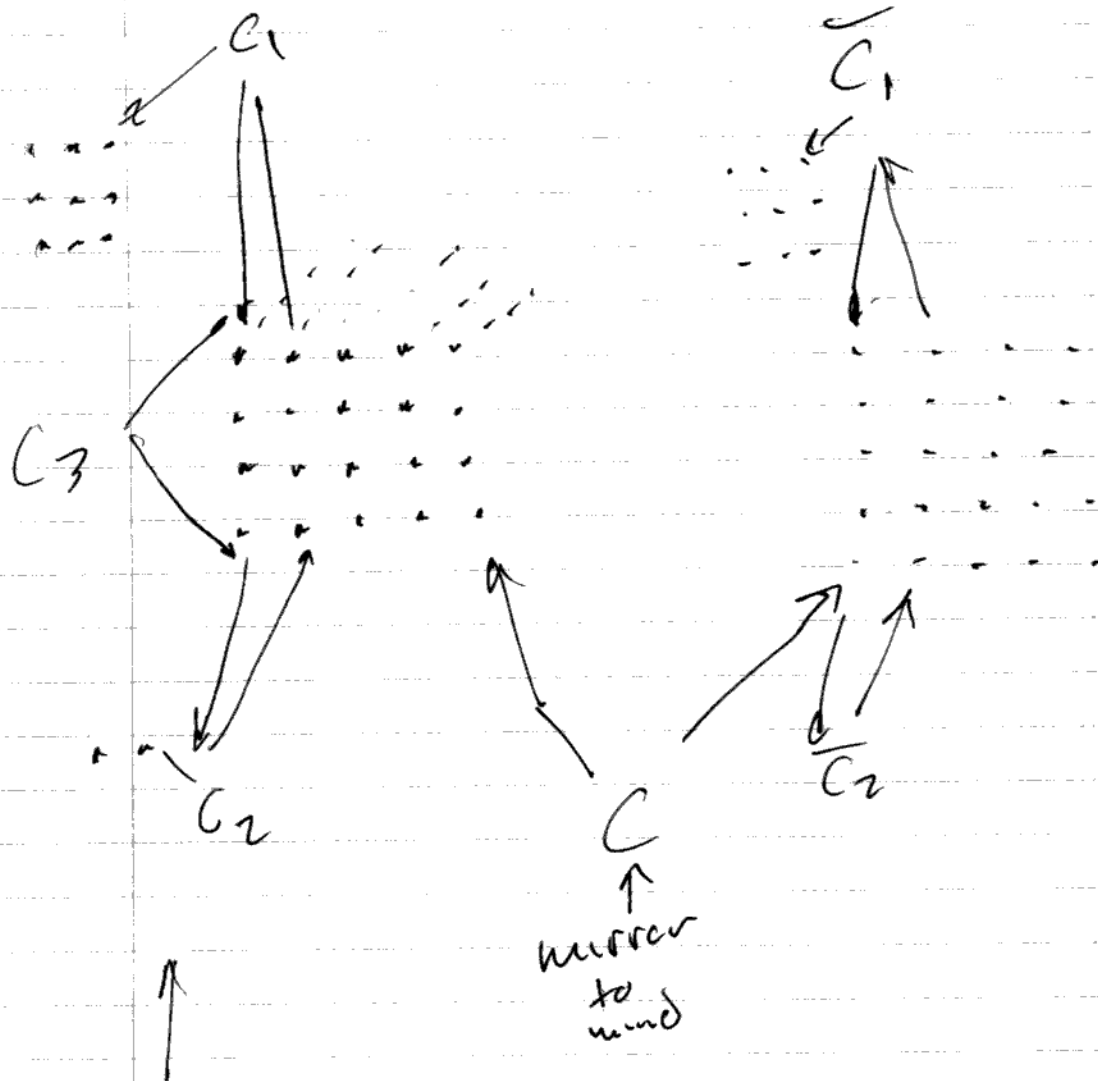 C1
C̅1
x
C3
C2
C̅2
C
mirror
to
mind